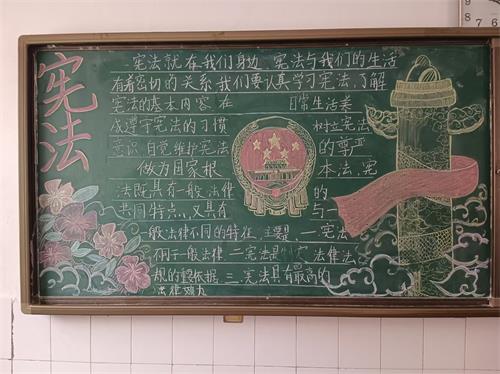 宪法
一.宪法就在我们身边、宪法与我们的生活
有着密切的关系,我们要认真学习宪法、了解
宪法的基本内容、在 日常生活养
成遵守宪法的习惯 树立宪法
意识、自觉维护宪法 的尊严
做为国家根 本法,宪
法既具有一般法律 的
共同特点、又具有 与一
般法律不同的特征、主要是、一宪法
不同于一般法律、二宪法是 法律法
规的 依据、三、宪法具有最高的
法律效力
9
8